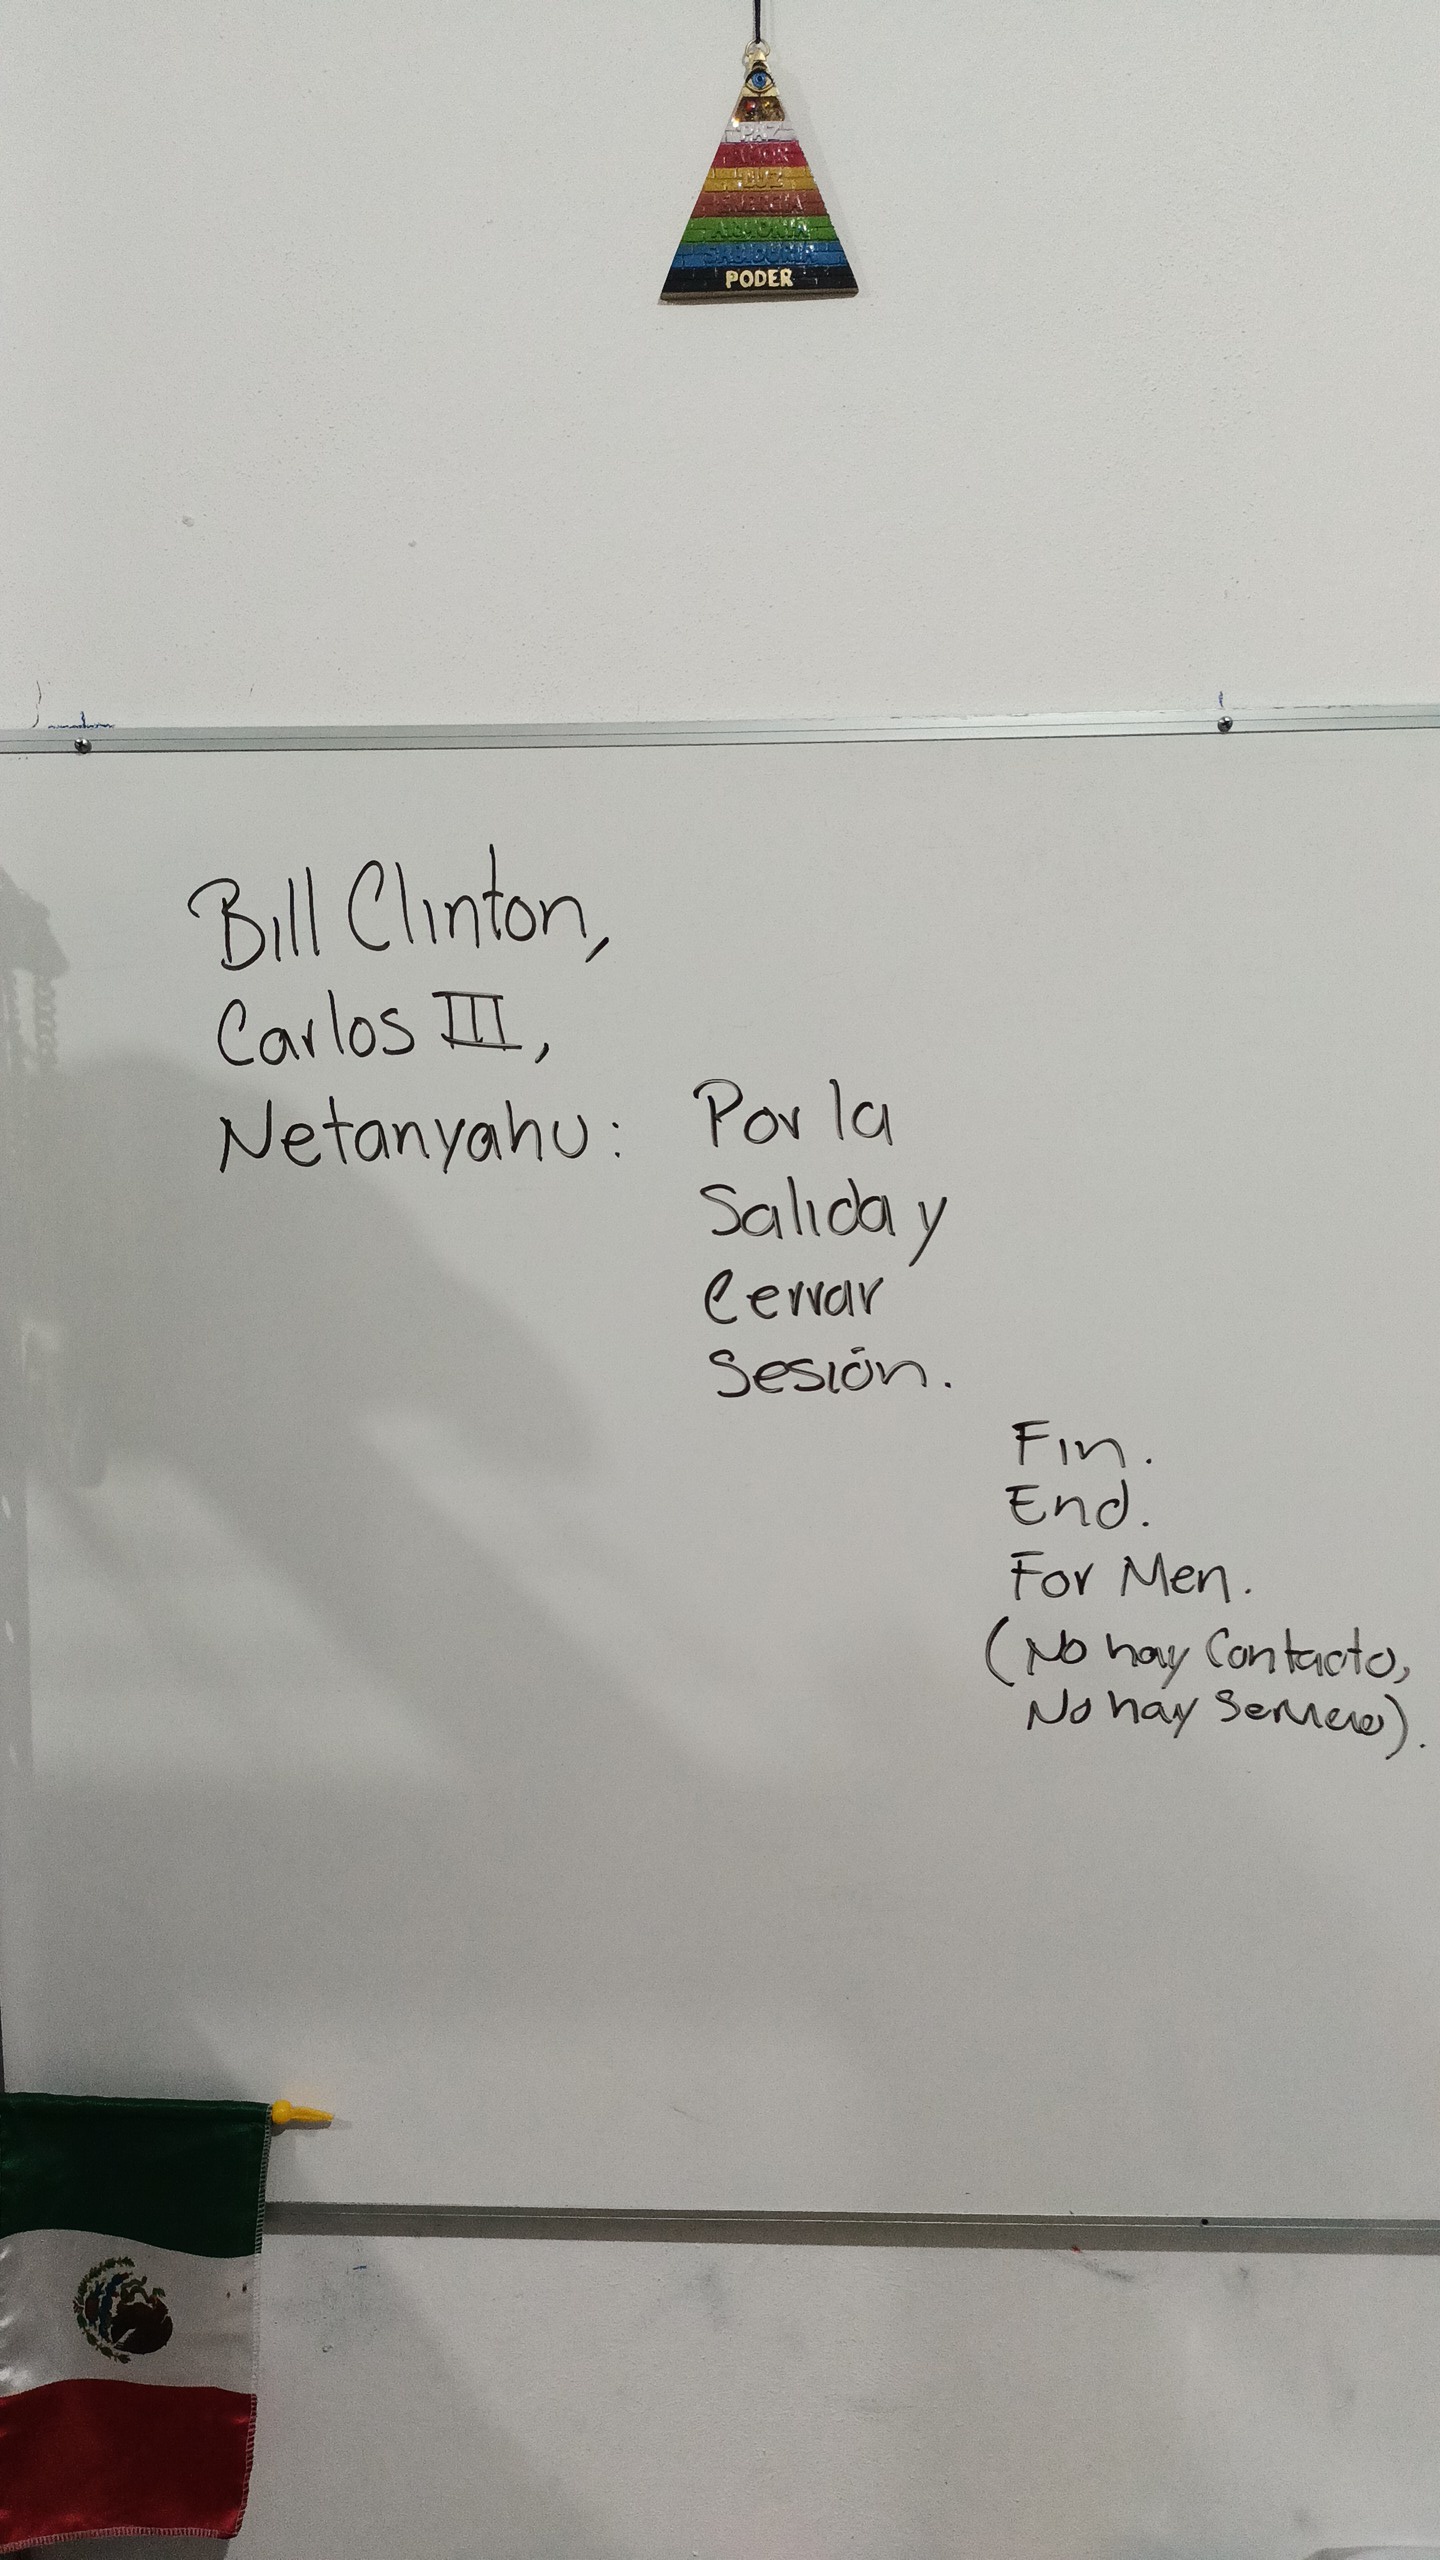 PAZ
AMOR
LUZ
ENERGIA
ARMONIA
SABIDURIA
PODER
Bill Clinton,
Carlos III,
Netanyahu:
Por la
Salida y
Cerrar
Sesión.
Fin.
End.
For Men.
(No hay Contacto,
No hay